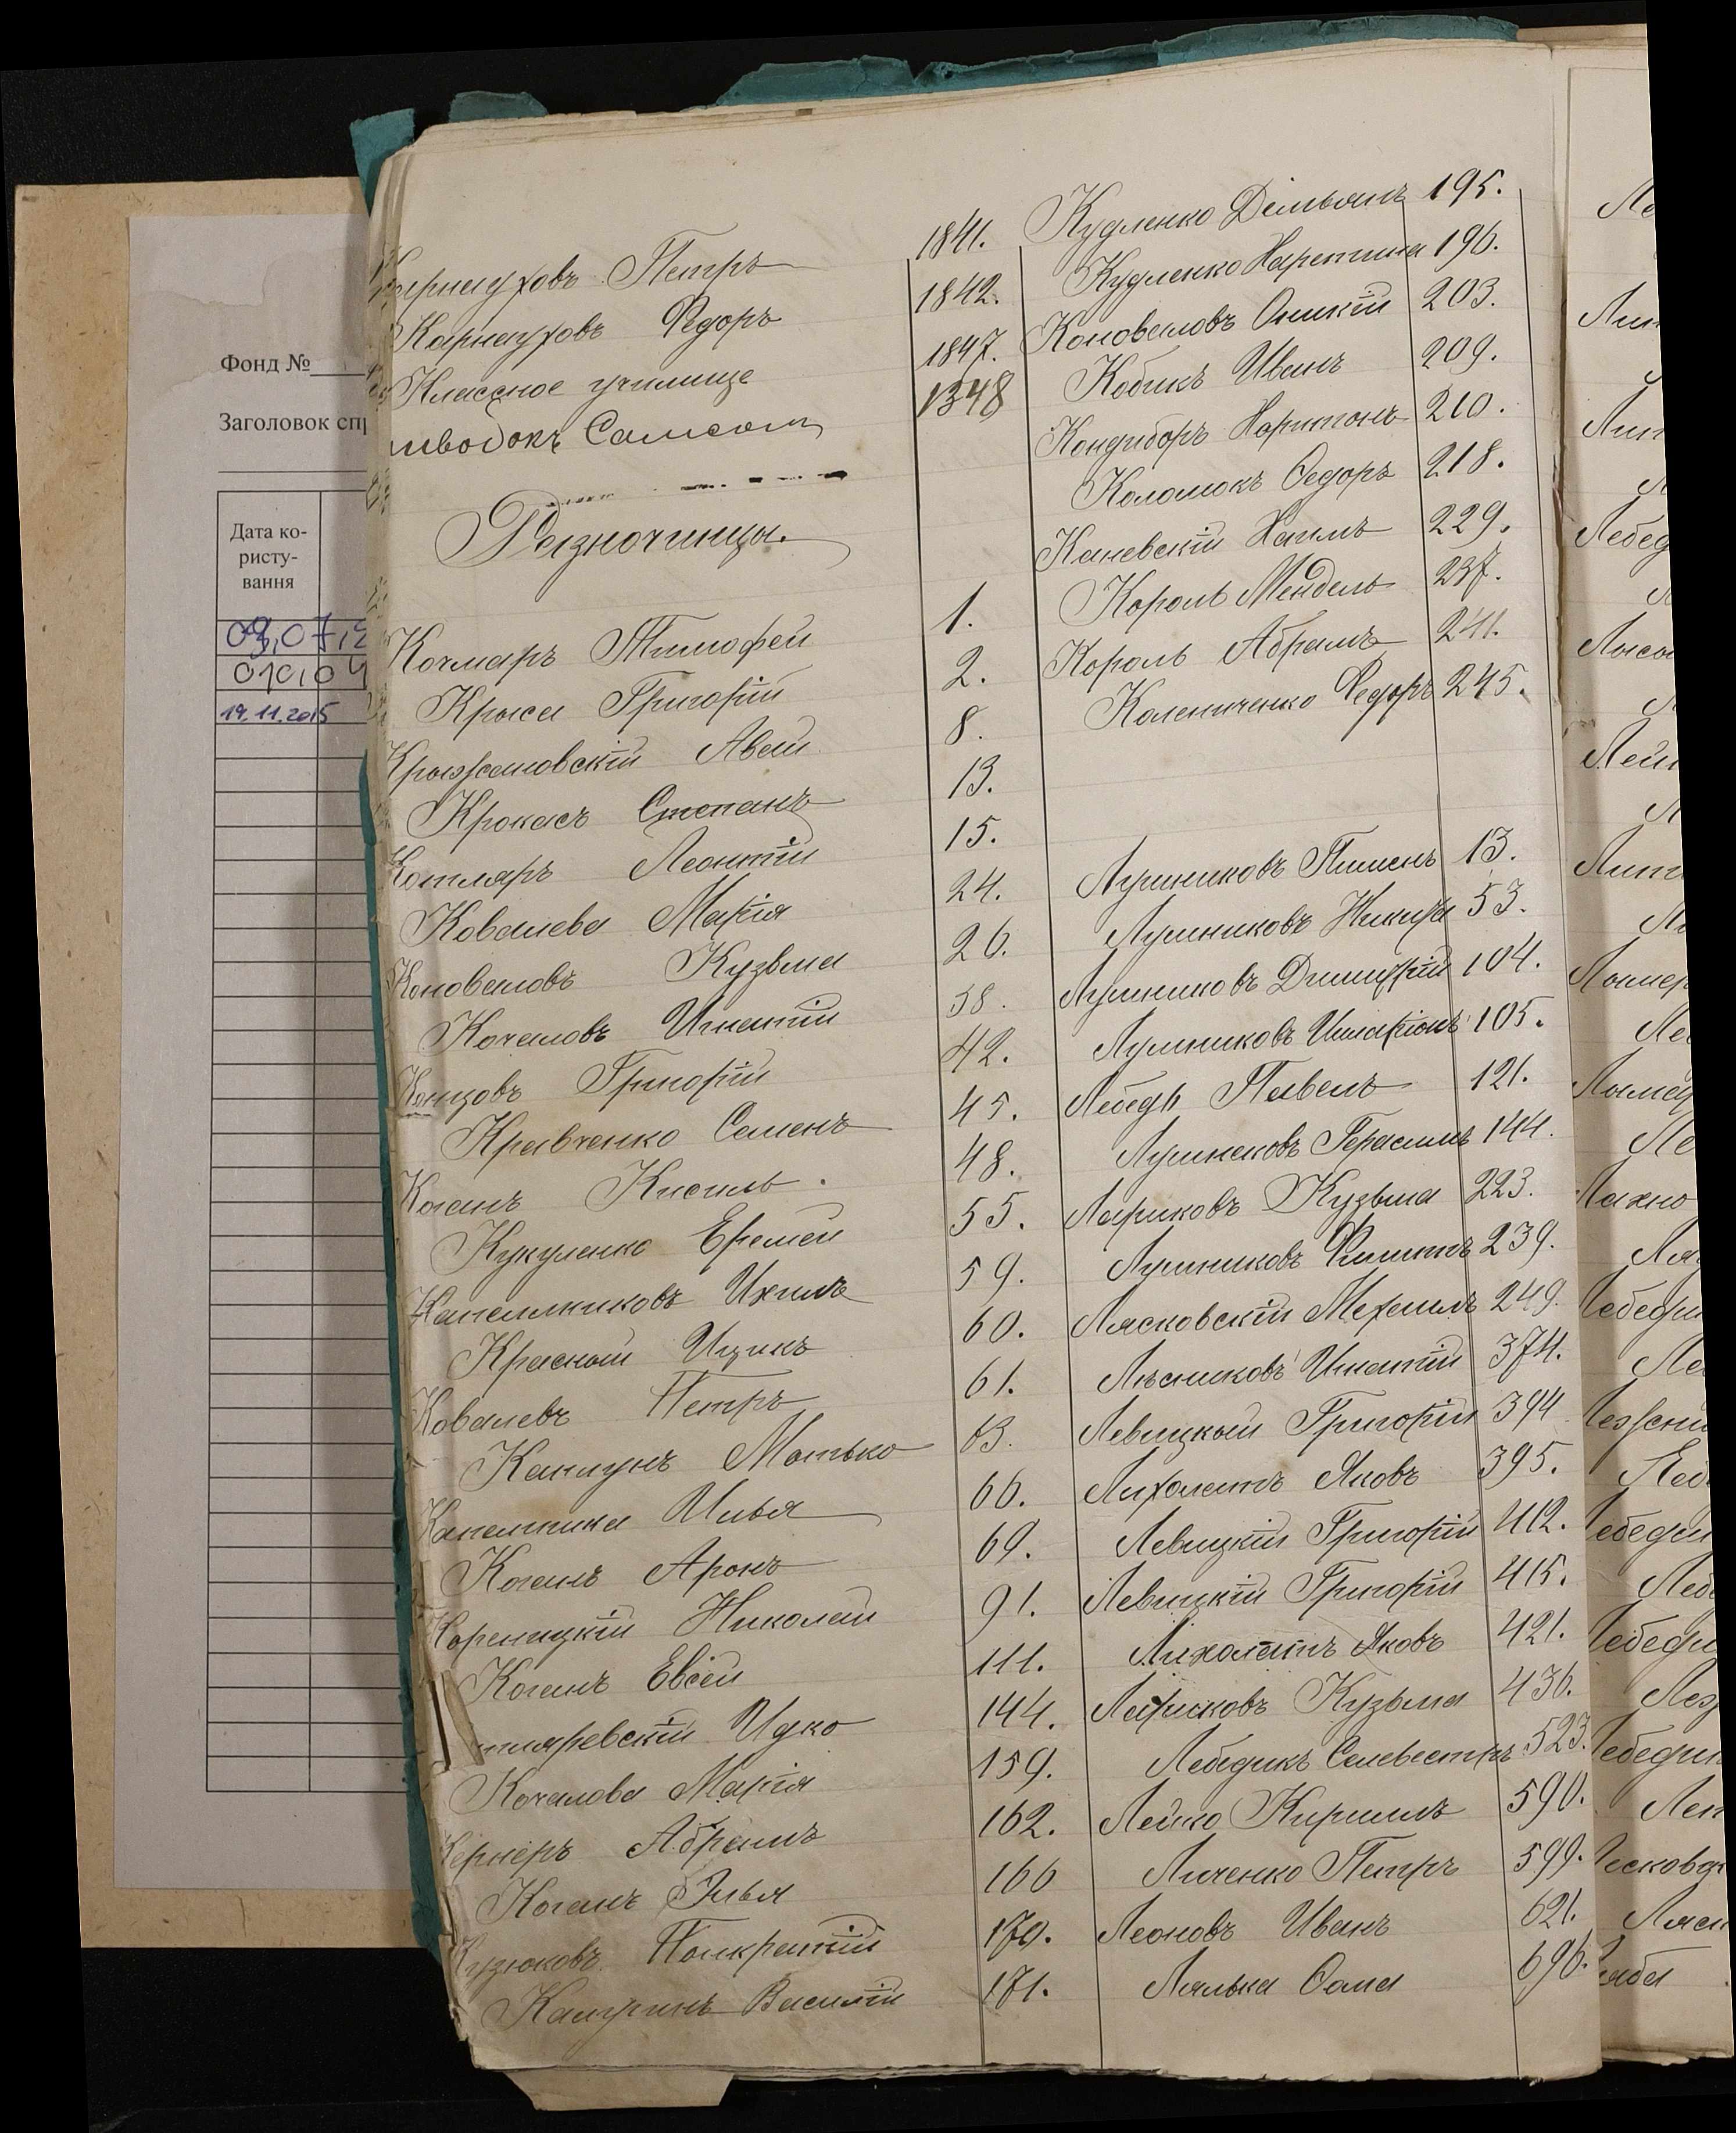 Фонд №
Заголовок спр
Дата ко-
ристу-
вання
19.11.2015
Карнауховъ Петръ 1841.
Карнауховъ Федоръ 1842.
Классное училище 1847.
Самсонъ 1348
Разночинцы.
Кочмаръ Тимофей 1.
Крыса Григорій 2.
Крыжановскій Авсій 8.
Крокасъ Степанъ 13.
Котляръ Леонтій 15.
Ковалева Марія 24.
Коноваловъ Кузьма 26.
Кочаловъ Игнатій 38.
Концовъ Григорій 42.
Кравченко Семенъ 45.
Коганъ Кисиль. 48.
Кукуленко Еремей 55.
Капельниковъ Ихилъ 59.
Красный Ицикъ 60.
Ковалевъ Петръ 61.
Каплунъ Мотько 63.
Илья 66.
Коганъ Аронъ 69.
Кореницкій Николай 91.
Коганъ Евсей 111.
Ицко 144.
Кочалова Марія 159.
Кернеръ Абрамъ 162.
Коганъ Элья 166
Кузюковъ Панкратій 170.
Василій 171.
Кудленко Демьянъ 195.
Кудленко Харитина 196.
Коноваловъ Оникій 203.
Кобикъ Иванъ 209.
Кондиборъ Харитонъ 210.
Коломокъ Федоръ 218.
Каневскій Хаимъ 229.
Король Мендель 237.
Король Абрамъ 241.
Коленченко Федоръ 245.
Лушниковъ Пименъ 13.
Лушниковъ Никита 53.
Лушниковъ Димитрій 104.
Лушниковъ Иларіонъ 105.
Лебедь Павелъ 121.
Лушниковъ Герасимъ 144.
Лариковъ Кузьма 223.
Лушниковъ Филиппъ 239.
Лясковскій Мехаилъ 249.
Лѣсниковъ Игнатій 374.
Левицкый Григорій 394
Лихолатъ Яковъ 395.
Левицкій Григорій 412.
Левицкій Григорій 415.
Лихолатъ Яковъ 421.
Лариковъ Кузьма 436.
Лебедикъ Селевестръ 523.
Лейко Кириллъ 590.
Личенко Петръ 599.
Леоновъ Иванъ 621.
Лялька Фома 696.